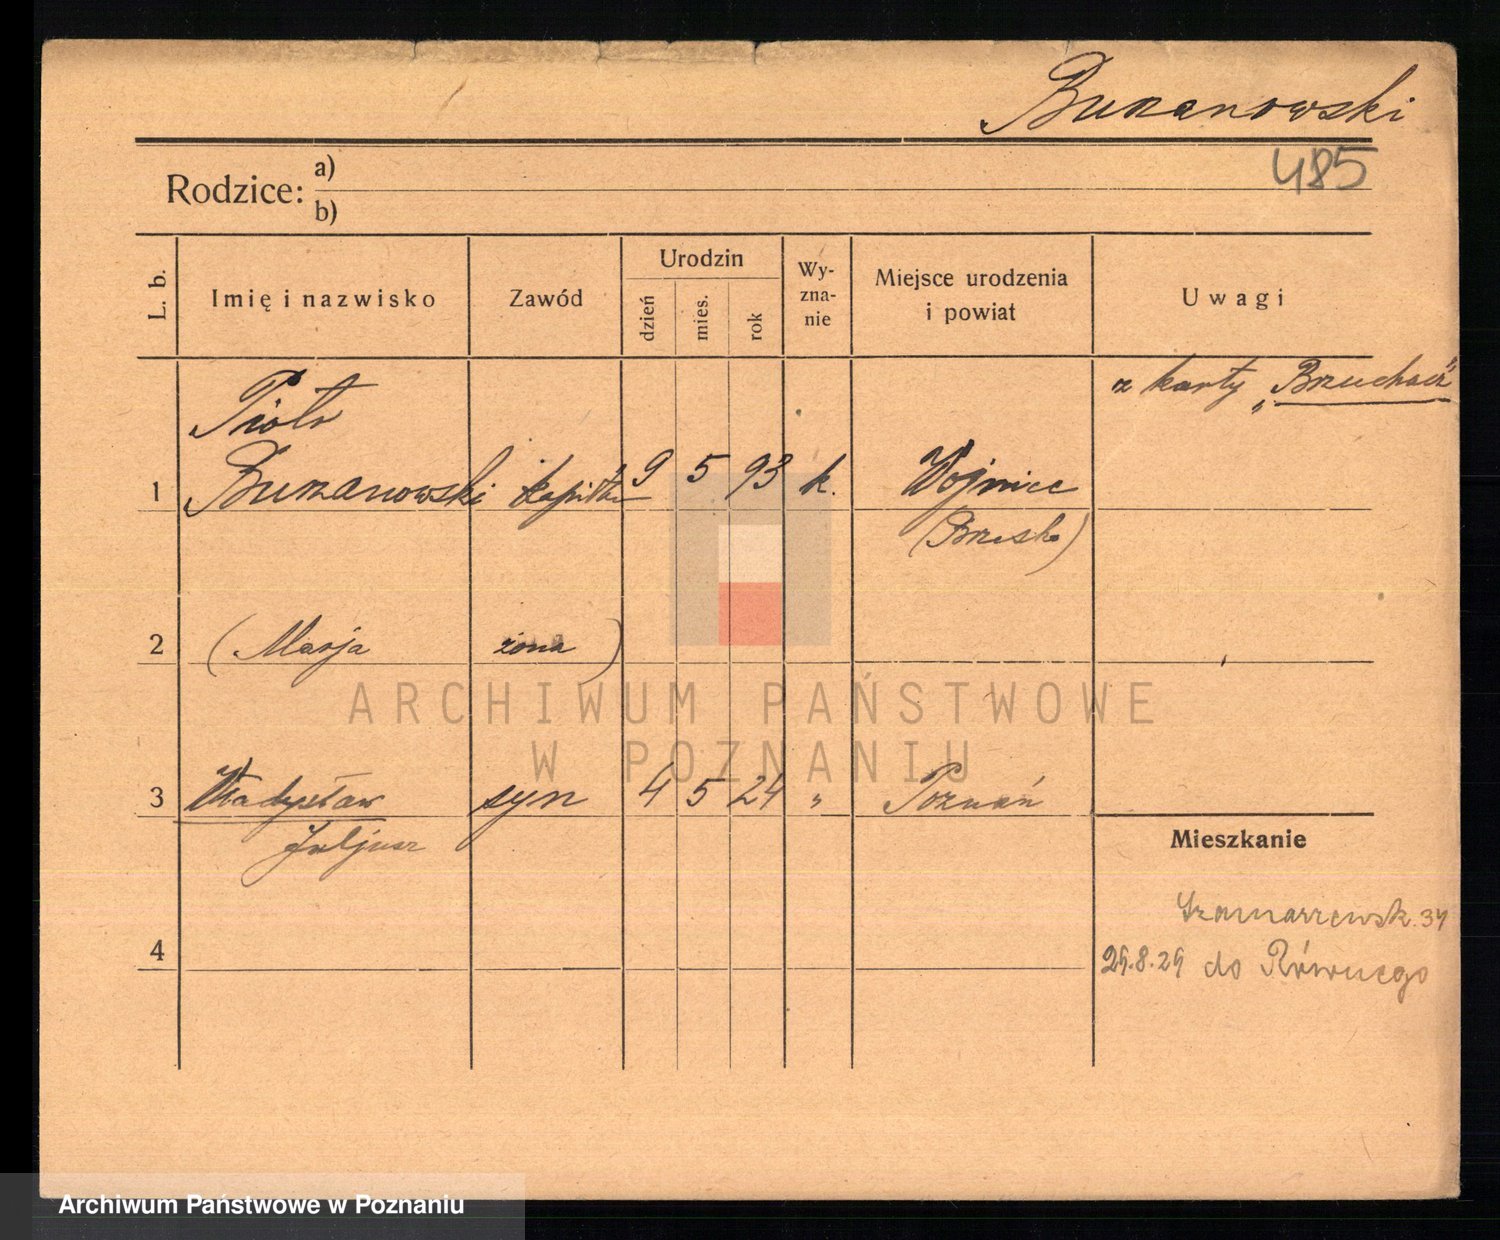 Bunanowski
485
Rodzice: a)
b)
L. b.
Imię i nazwisko
Zawód
Urodzin
dzień
mies.
rok
Wy-
zna-
nie
Miejsce urodzenia
i powiat
Uwagi
z karty „Brzuchacz"
Piotr
1 Bunanowski kapitan 9 5 93 k. Wojnicz
(Brzesko)
2 (Marja żona)
ARCHIWUM PAŃSTWOWE
W POZNANIU
3 Władysław syn 4 5 24 " Poznań
Juljusz
Mieszkanie
Szamarzewsk. 34
4
29.8.29 do Równego
Archiwum Państwowe w Poznaniu